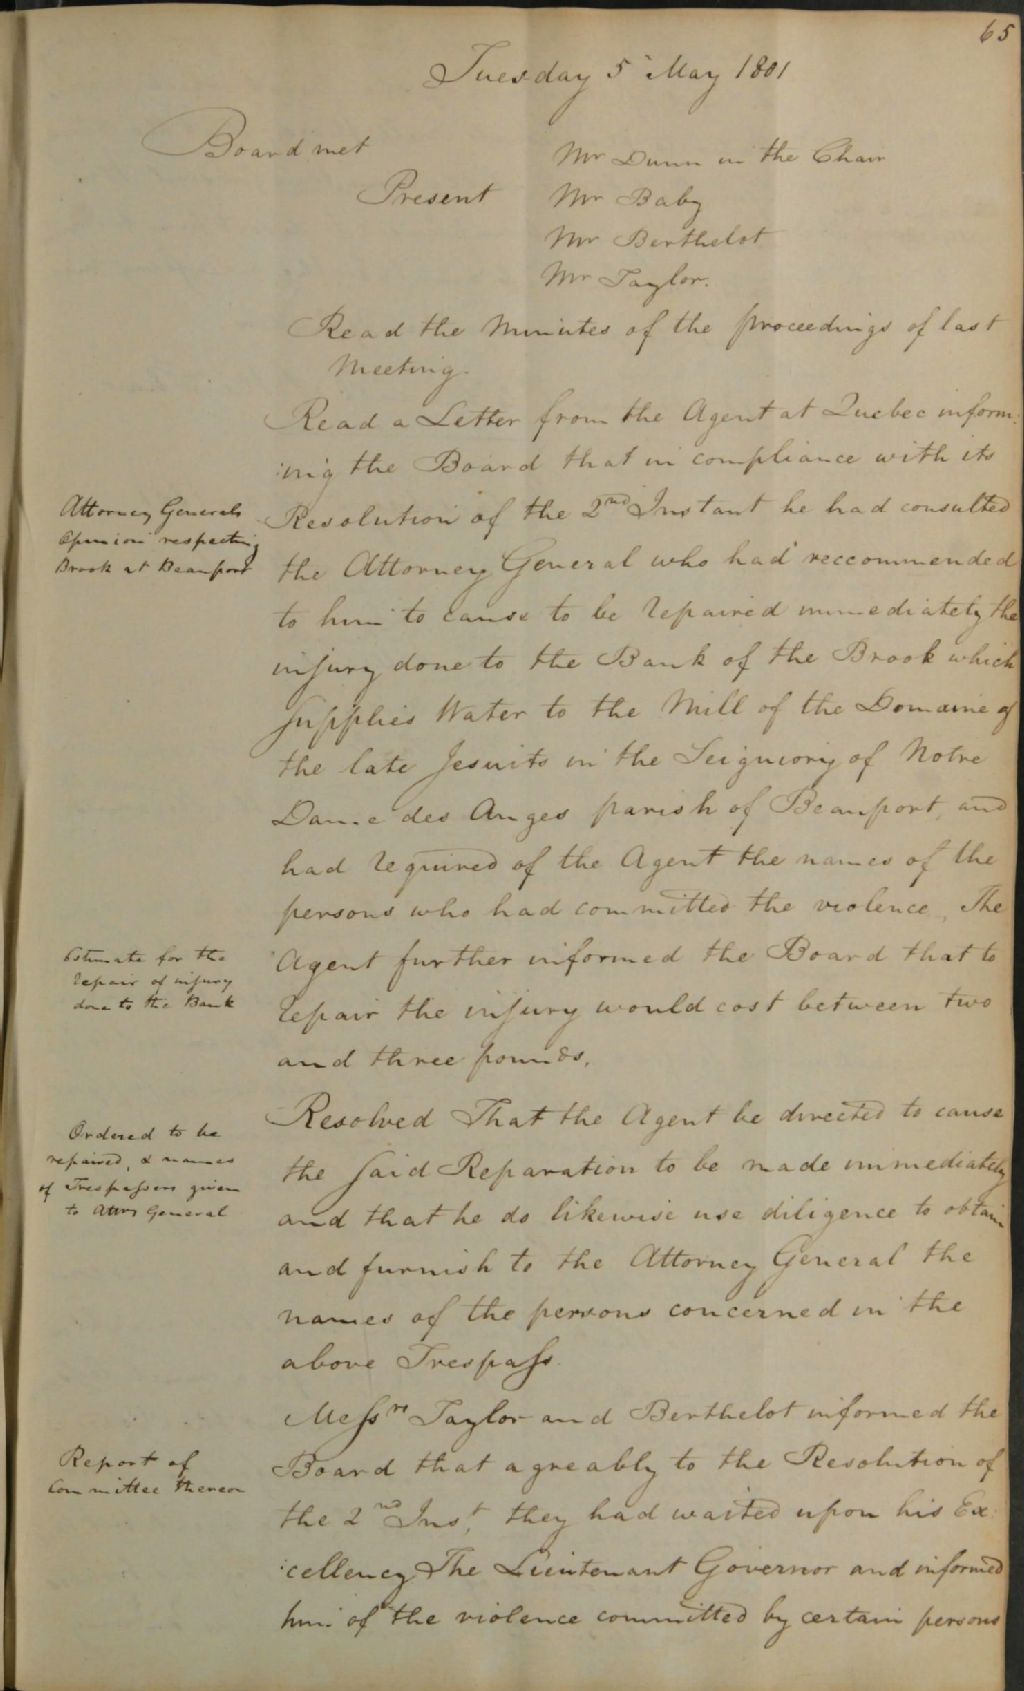 65
Tuesday 5 May 1801
Board met
Mr Dunn in the Chair
Present Mr Baby
Mr Berthelot
Mr Taylor.
Read the Minutes of the proceedings of last
Meeting.
Read a Letter from the Agent at Quebec inform:
:ing the Board that in compliance with its
Attorney Generals
Opinion respecting
Brook at Beauport
Resolution of the 2nd Instant he had consulted
the Attorney General who had reccommended
to him to cause to be repaired immediately the
injury done to the Bank of the Brook which
supplies Water to the Mill of the Domaine of
the late Jesuits in the Seigniory of Notre
Dame des Anges parish of Beauport, and
had required of the Agent the names of the
persons who had committed the violence, The
Estimate for the
repair of injury
done to the Bank
Agent further informed the Board that to
repair the injury would cost between two
and three pounds.
Resolved That the Agent be directed to cause
Ordered to be
repaired, & names
of Trespassers given
to Atty General
the said Reparation to be made immediately
and that he do likewise use diligence to obtain
and furnish to the Attorney General the
names of the persons concerned in the
above Trespass.
Messrs Taylor and Berthelot informed the
Report of
Committee thereon
Board that agreably to the Resolution of
the 2nd Inst, they had waited upon his Ex:
:cellency The Lieutenant Governor and informed
him of the violence committed by certain persons